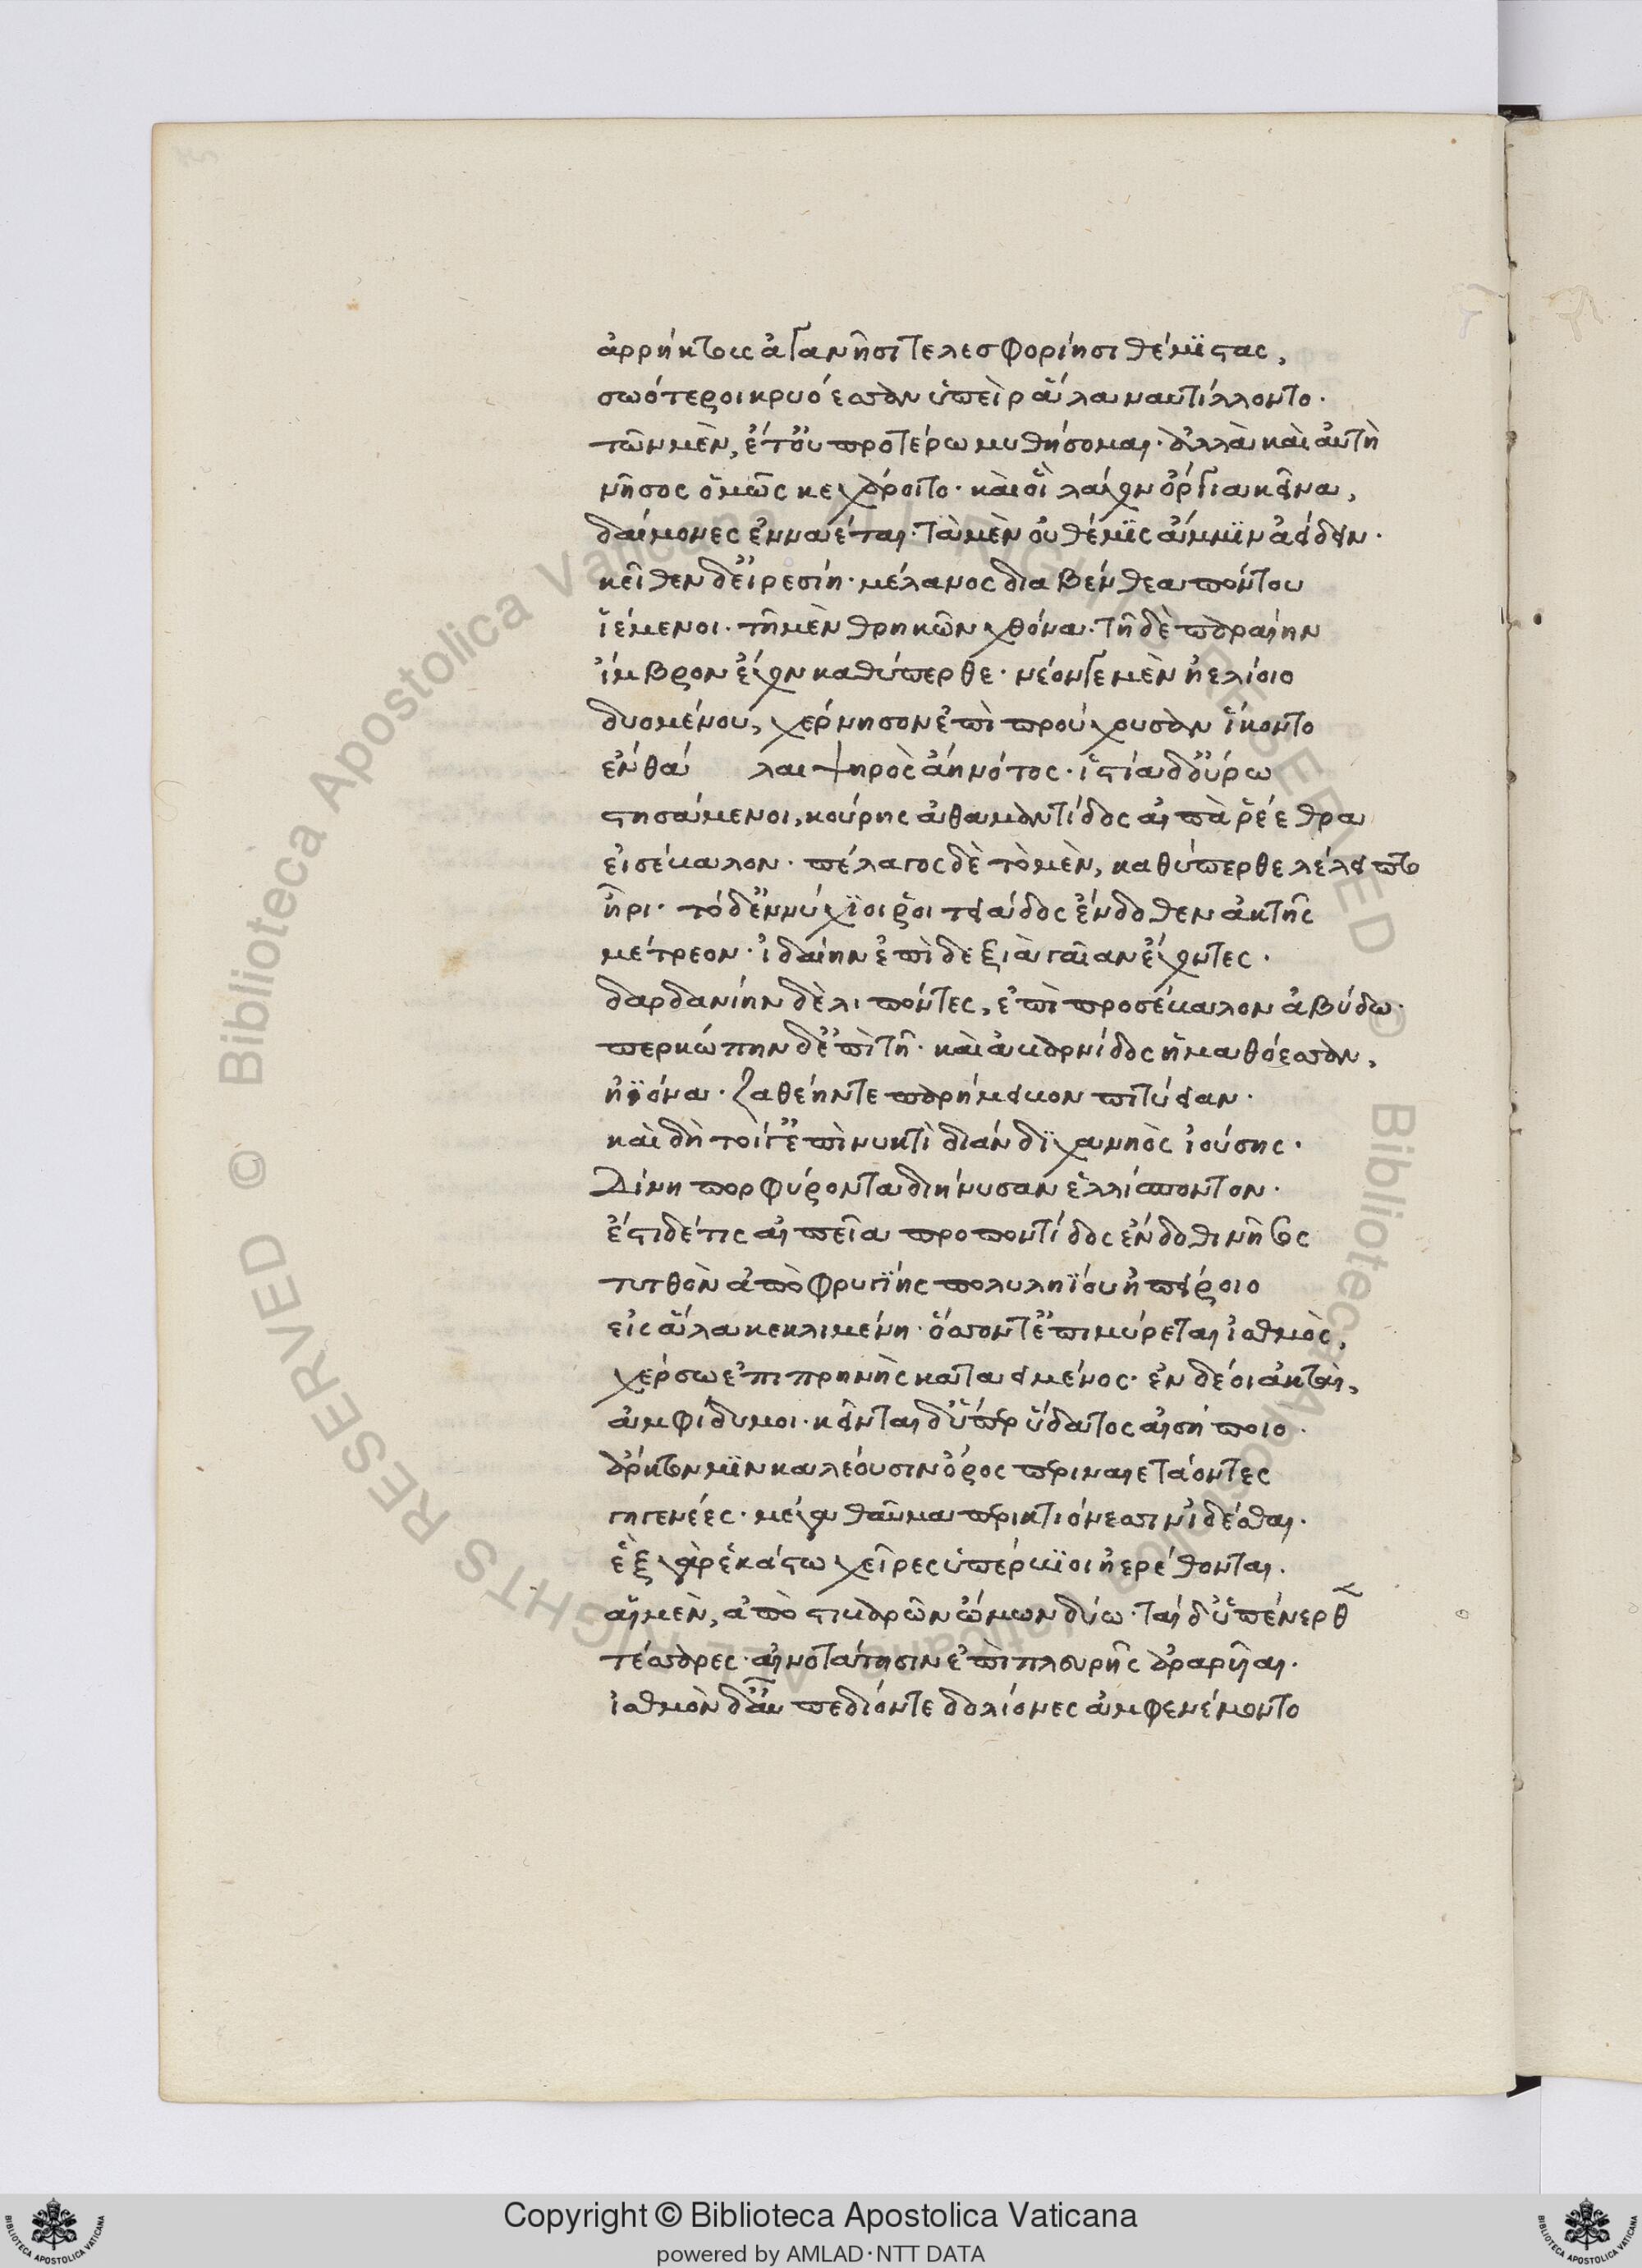 ἀρρήκτους ἀγανῇσι τελεσφορίῃσι θέμϊστας,
σωότεροι κρυόεσσαν ὑπεὶρ ἅλα ναυτίλλοντο·
τῶν μὲν, ἔτ' οὐ προτέρω μυθήσομαι· ἀλλὰ καὶ αὐτὴ
νῆσος ὅμῶς κεχάροιτο· καὶ οἳ λάχον ὄργια κεῖνα,
δαίμονες ἐνναέται· τὰ μὲν οὐ θέμϊς ἄμμϊν ἀείδειν·
κεῖθεν δ' εἰρεσίη· μέλανος δια βένθεα πόντου
ἱέμενοι· τῇ μὲν θρηκῶν χθόνα· τῇ δὲ περαίην
ἴμβρον ἔχον καθύπερθε· νέον γε μὲν ἠελίοιο
δυομένου, χερνησον ἐπὶ προύχουσαν ἵκοντο
ἔνθα λαιψηρὸς ἄη νότος· ἱστία δ' οὔρω
στησάμενοι, κούρης ἀθαμαντίδος αἰπὰ ῥέεθρα
εἰσέβαλον· πέλαγος δὲ τὸ μὲν, καθύπερθε λέλειπτο
ἦρι· τό δ' ἐννύχϊοι ῥοιτειάδος ἔνδοθεν ἀκτῆς
μέτρεον· ἰδαίην ἐπὶ δεξιὰ γαῖαν ἔχοντες·
δαρδανίην δὲ λιπόντες, ἐπὶ προσέβαλον ἀβύδω·
περκώπην δ' ἐπὶ τῇ· καὶ ἀβαρνίδος ἠμαθόεσσαν,
ἠϊόνα· ζαθέην τε παρήμειβον πιτύειαν·
καὶ δὴ τοί γ' ἐπὶ νυκτὶ διάνδϊχα νηὸς ἰούσης·
Δίνῃ πορφύροντα διήνυσαν ἑλλήσποντον·
ἔστι δέ τις αἰπεῖα προποντίδος ἔνδοθι νῆσος
τυτθὸν ἀπὸ φρυγϊης πολυληΐου ἠπείροιο
εἰς ἅλα κεκλιμένη· ὅσσον τ' ἐπιμύρεται ἰσθμὸς,
χέρσω ἐπιπρηνὴς καταειμένος· ἐν δέ οἱ ἀκταὶ,
ἀμφίδυμοι· κεῖνται δ' ὑπὲρ ὕδατος αἰσήποιο·
ἄρκτον μϊν καλέουσιν ὄρος περιναιετάοντες
γηγενέες· μέγα θαῦμα περικτιόνεσσιν ἰδέσθαι·
ἓξ γὰρ ἑκάστω χεῖρες ὑπέρβϊοι ἠερέθονται·
αἱ μὲν, ἀπὸ στιβαρῶν ὤμων δύω· ταὶ δ' ὑπένερθ
τέσσαρες αἰνοτάτῃσιν ἐπὶ πλευρῇς ἀραρῆαι·
ἰσθμὸν δ' ἂν πεδίον τε δολίονες ἀμφενέμοντο